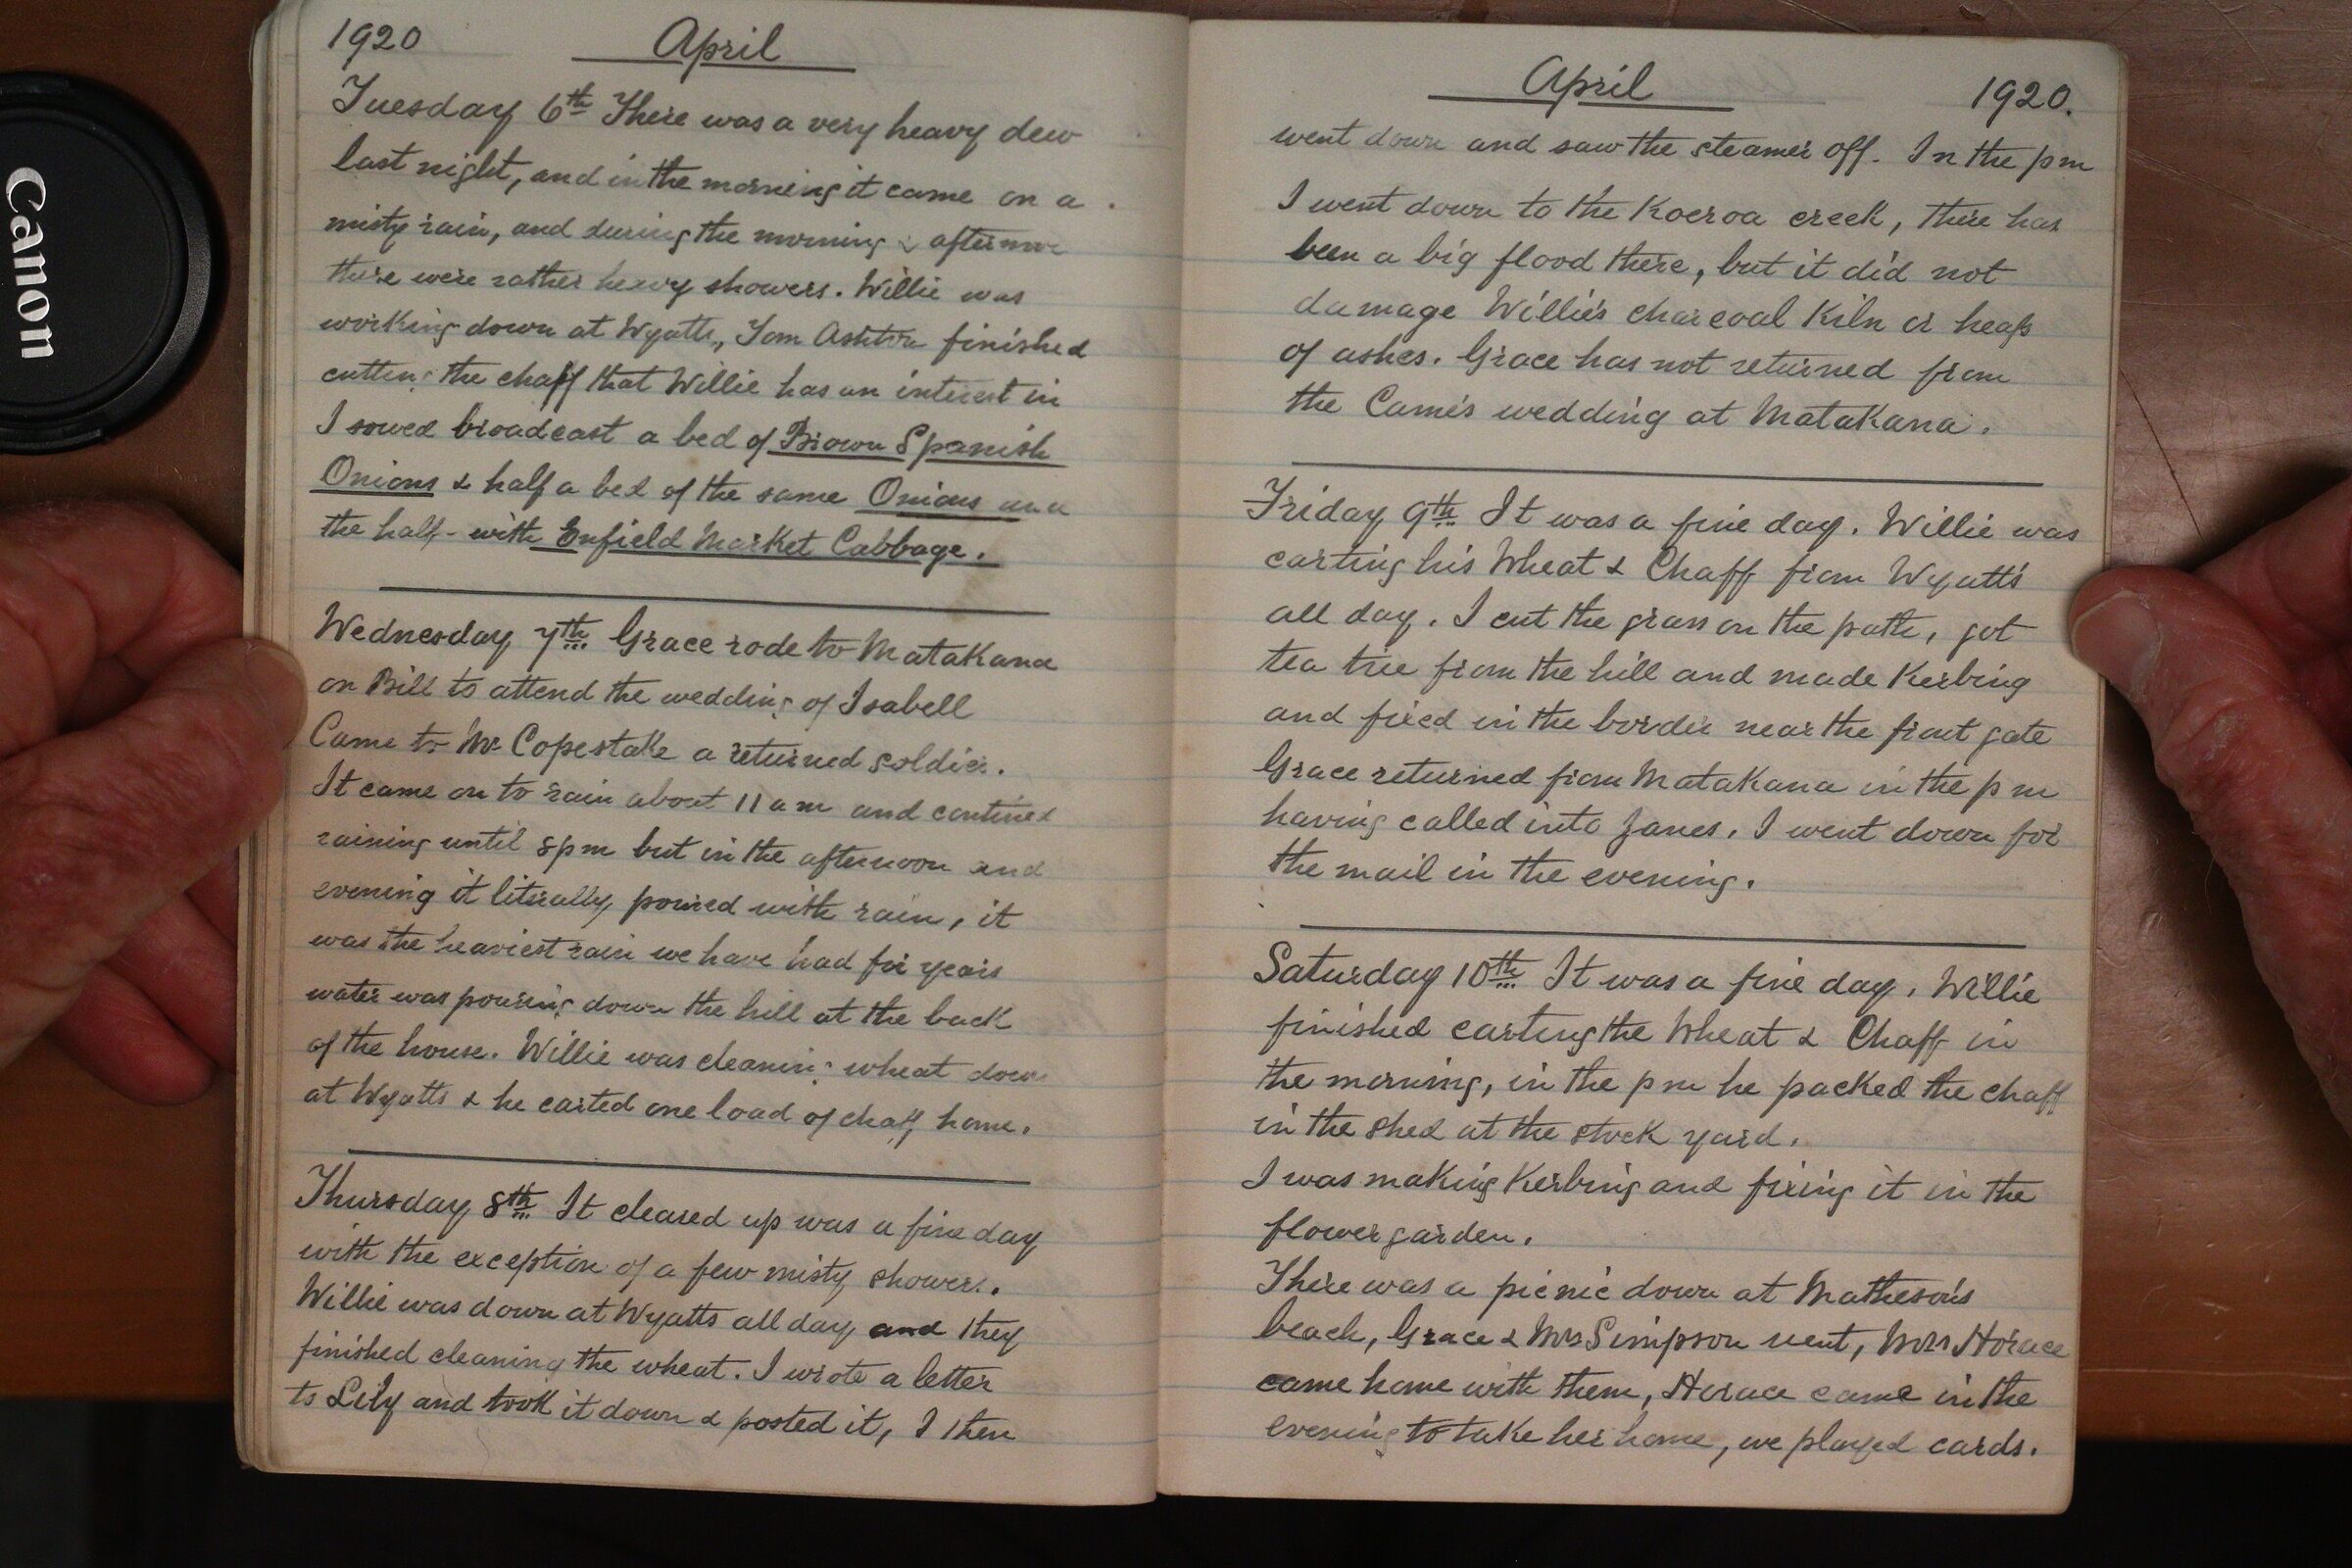 Canon
1920 April
Tuesday 6th There was a very heavy dew
last night, and in the morning it came on a
misty rain, and during the morning & afternoon
there were rather heavy showers. Willie was
working down at Wyatts, Tom Ashton finished
cutting the chaff that Willie has an interest in
I sowed broadcast a bed of Brown Spanish
Onions & half a bed of the same Onions and
the half - with Enfield Market Cabbage.
Wednesday 7th Grace rode to Matakana
on Bill to attend the wedding of Isabell
Came to Mr Copestake a returned soldier.
It came on to rain about 11 am and contined
raining until 8pm but in the afternoon and
evening it literally poured with rain, it
was the heaviest rain we have had for years
water was pouring down the hill at the back
of the house. Willie was cleaning wheat down
at Wyatts & he carted one load of chaff home.
Thursday 8th It cleared up was a fine day
with the exception of a few misty showers.
Willie was down at Wyatts all day and they
finished cleaning the wheat. I wrote a letter
to Lily and took it down & posted it, I then
April 1920.
went down and saw the steamer off. In the pm
I went down to the Koeroa creek, there has
been a big flood there, but it did not
damage Willie's charcoal Kiln or heap
of ashes. Grace has not returned from
the Came's wedding at Matakana.
Friday 9th It was a fine day. Willie was
carting his Wheat & Chaff from Wyatt's
all day. I cut the grass on the path, got
tea tree from the hill and made Kerbing
and fixed in the border near the front gate
Grace returned from Matakana in the pm
having called into Janes. I went down for
the mail in the evening.
Saturday 10th It was a fine day. Willie
finished carting the Wheat & Chaff in
the morning, in the pm he packed the chaff
in the shed at the stock yard.
I was making Kerbing and fixing it in the
flower garden.
There was a picnic down at Matheson's
beach, Grace & Mrs Simpson went, Mrs Horace
came home with them, Horace came in the
evening to take her home, we played cards.